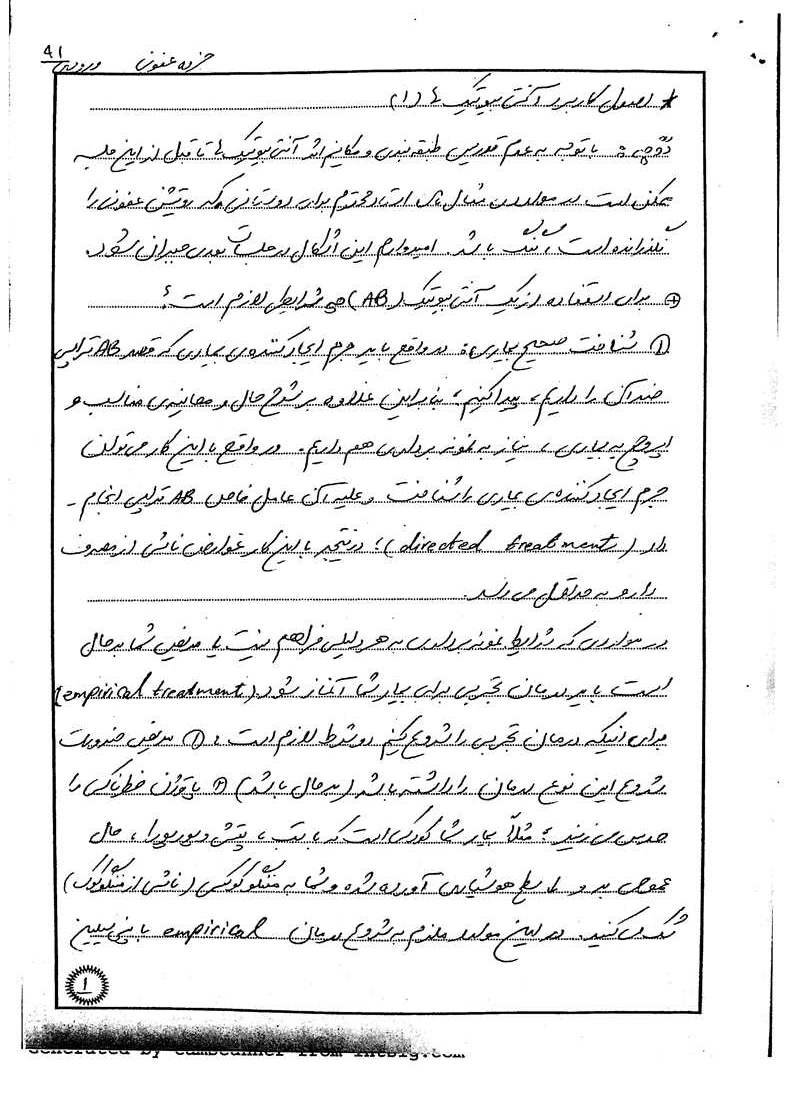 جزوه عفونی ورودی ۴۱
* اصول کاربرد آنتی بیوتیک ها (۱)
توجه: با توجه به عدم تدریس طبقه بندی و مکانیسم اثر آنتی بیوتیک ها تا قبل از این جلسه
ممکن است در مواردی مثال های استاد محترم برای دوستانی که روتیشن عفونی را
نگذرانده است، گنگ باشد. امیدوارم این اشکال در جلسات بعدی جبران شود.
⊕ برای استفاده از یک آنتی بیوتیک (AB) چه شرایطی لازم است؟
① شناخت صحیح بیماری: در واقع باید جرم ایجاد کننده ی بیماری که قصد AB تراپی
ضد آن را داریم، پیدا کنیم؛ بنابراین علاوه بر شرح حال و معاینه ی مناسب و
اپروچ به بیماری، نیاز به نمونه برداری هم داریم. در واقع با این کار می توان
جرم ایجاد کننده ی بیماری را شناخت و علیه آن عامل خاص AB تراپی انجام -
داد (directed treatment)؛ در نتیجه با این کار عوارض ناشی از مصرف
دارو به حداقل می رسد.
در مواردی که شرایط نمونه برداری به هر دلیلی فراهم نیست یا مریض شما بدحال
است باید درمان تجربی برای بیمار شما آغاز شود (empirical treatment)
برای اینکه درمان تجربی را شروع کنیم دو شرط لازم است: ① مریض ضرورت
شروع این نوع درمان را داشته باشد (بدحال باشد) ② پاتوژن خطرناکی را
حدس می زنید؛ مثلاً بیمار شما کودکی است که با تب، پتشی و پورپورا، حال
عمومی بد و سطح هوشیاری آورده شده و شما به مننگوکوکسمی (ناشی از مننگوکوک)
شک می کنید. در این موارد ملزم به شروع درمان empirical با پنی سیلین
۱
Generated by CamScanner from intsig.com